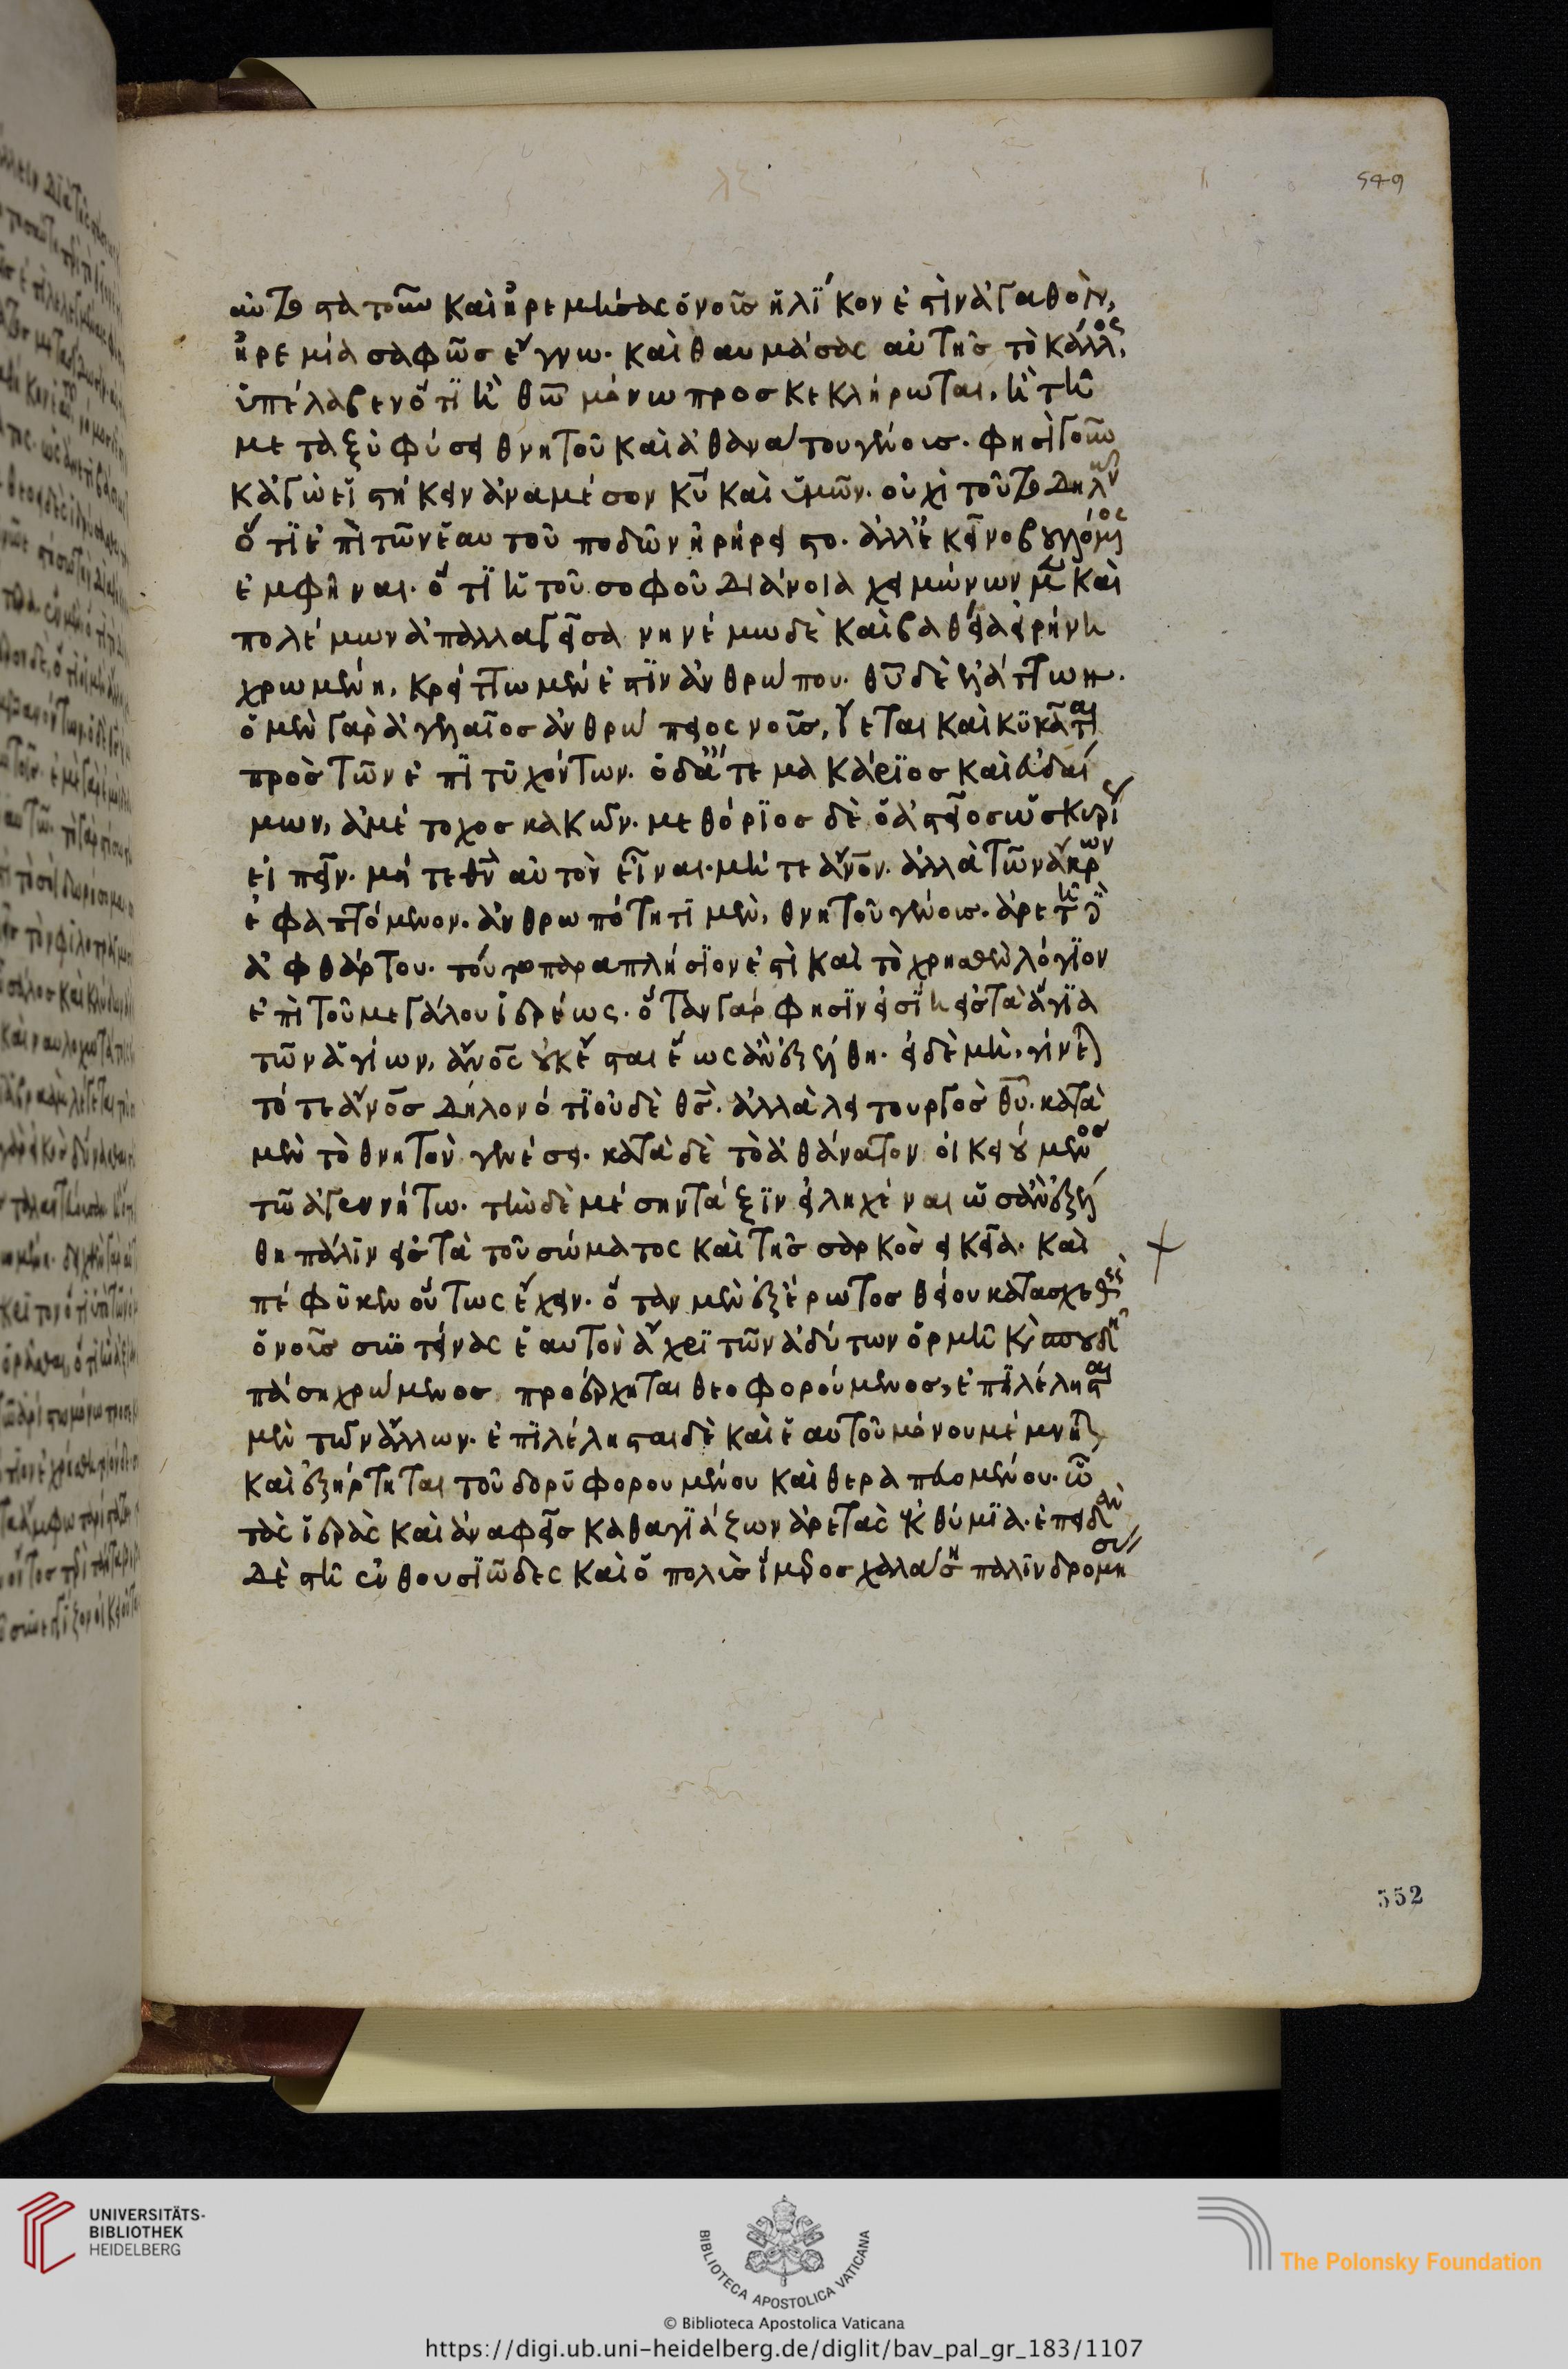 αὐτὸ στάτω καὶ ἠρεμήσας ὁ νοῦς ἡλίκον ἐστὶν ἀγαθὸν,
ἠρεμία σαφῶς ἔγνω. καὶ θαυμάσας αὐτῆς τὸ κάλλος.
ὑπέλαβεν ὅτι ἢ θῶ μόνω προσκεκλήρωται, ἢ τῆ
μεταξὺ φύσει θνητοῦ καὶ ἀθανάτου γένους. φησὶ γοῦν
κἀγὼ εἱστήκειν ἀναμέσον κυ καὶ ὑμῶν. οὐχὶ τοῦτο δηλῶν
ὅτι ἐπὶ τῶν ἑαυτοῦ ποδῶν ἠρήρειστο. ἀλλ' ἐκεῖνο βουλόμενος
ἐμφῆναι. ὅτι ἡ τοῦ σοφοῦ διάνοια χειμώνων μὲν καὶ
πολέμων ἀπαλλαγεῖσα νηνέμω δὲ καὶ βαθεία εἰρήνη
χρωμένη, κρείττων μέν ἐστιν ἀνθρώπου. θυ δὲ ἐλάττων.
ὁ μὲν γὰρ ἀγελαῖος ἀνθρώπειος νοῦς, ἵεται καὶ κυκᾶται
πρὸς τῶν ἐπιτυχόντων. ὁ δ' ἅτε μακάριος καὶ εὐδαί
μων, ἀμέτοχος κακῶν. μεθόριος δὲ ὁ ἀστεῖος ὡς κυρίως
εἰπεῖν. μήτε θν αὐτὸν εἶναι. μήτε ἄνον. ἀλλὰ τῶν ἄκρων
ἐφαπτόμενον. ἀνθρωπότητι μὲν, θνητοῦ γένους. ἀρετῆ δὲ
ἀφθάρτου. τούτω παραπλήσιον ἐστὶ καὶ τὸ χρησθὲν λόγιον
ἐπὶ τοῦ μεγάλου ἱερέως. ὅταν γάρ φησιν εἰσίη εἰς τὰ ἅγια
τῶν ἁγίων, ἄνος οὐκ ἔσται ἕως ἂν ἐξέλθη. εἰ δὲ μὴ, γίνεται
τότε ἄνος δηλονότι οὐδὲ θς. ἀλλὰ λειτουργὸς θυ. κατὰ
μὲν τὸ θνητὸν γενέσει. κατὰ δὲ τὸ ἀθάνατον οἰκειούμενος
τῶ ἀγεννήτω. τὴν δὲ μέσην τάξιν εἰληχέναι ὡς ἂν ἐξέλ
θη πάλιν εἰς τὰ τοῦ σώματος καὶ τῆς σαρκὸς οἰκεῖα. καὶ
πέφυκεν οὕτως ἔχειν. ὅταν μὲν ἐξ ἔρωτος θείου κατασχεθεὶς
ὁ νοῦς συντείνας ἑαυτὸν ἄχρι τῶν ἀδύτων ὁρμῆ καὶ σπουδῆ
πάση χρώμενος προέρχηται θεοφορούμενος, ἐπιλέλησται
μὲν τῶν ἄλλων. ἐπιλέλησται δὲ καὶ ἑαυτοῦ μόνου μέμνηται
καὶ ἐξήρτηται τοῦ δορυφορουμένου καὶ θεραπευομένου. ὧ
τὰς ἱερὰς καὶ ἀναφεῖς καθαγιάζων ἀρετὰς ἐκθυμιᾶ. ἐπειδὰν
δὲ στῆ ἐνθουσιῶδες καὶ ὁ πολὺς ἵμερος χαλάση παλινδρομή
σας
549
352
UNIVERSITÄTS-
BIBLIOTHEK
HEIDELBERG
BIBLIOTECA APOSTOLICA VATICANA
© Biblioteca Apostolica Vaticana
The Polonsky Foundation
https://digi.ub.uni-heidelberg.de/diglit/bav_pal_gr_183/1107